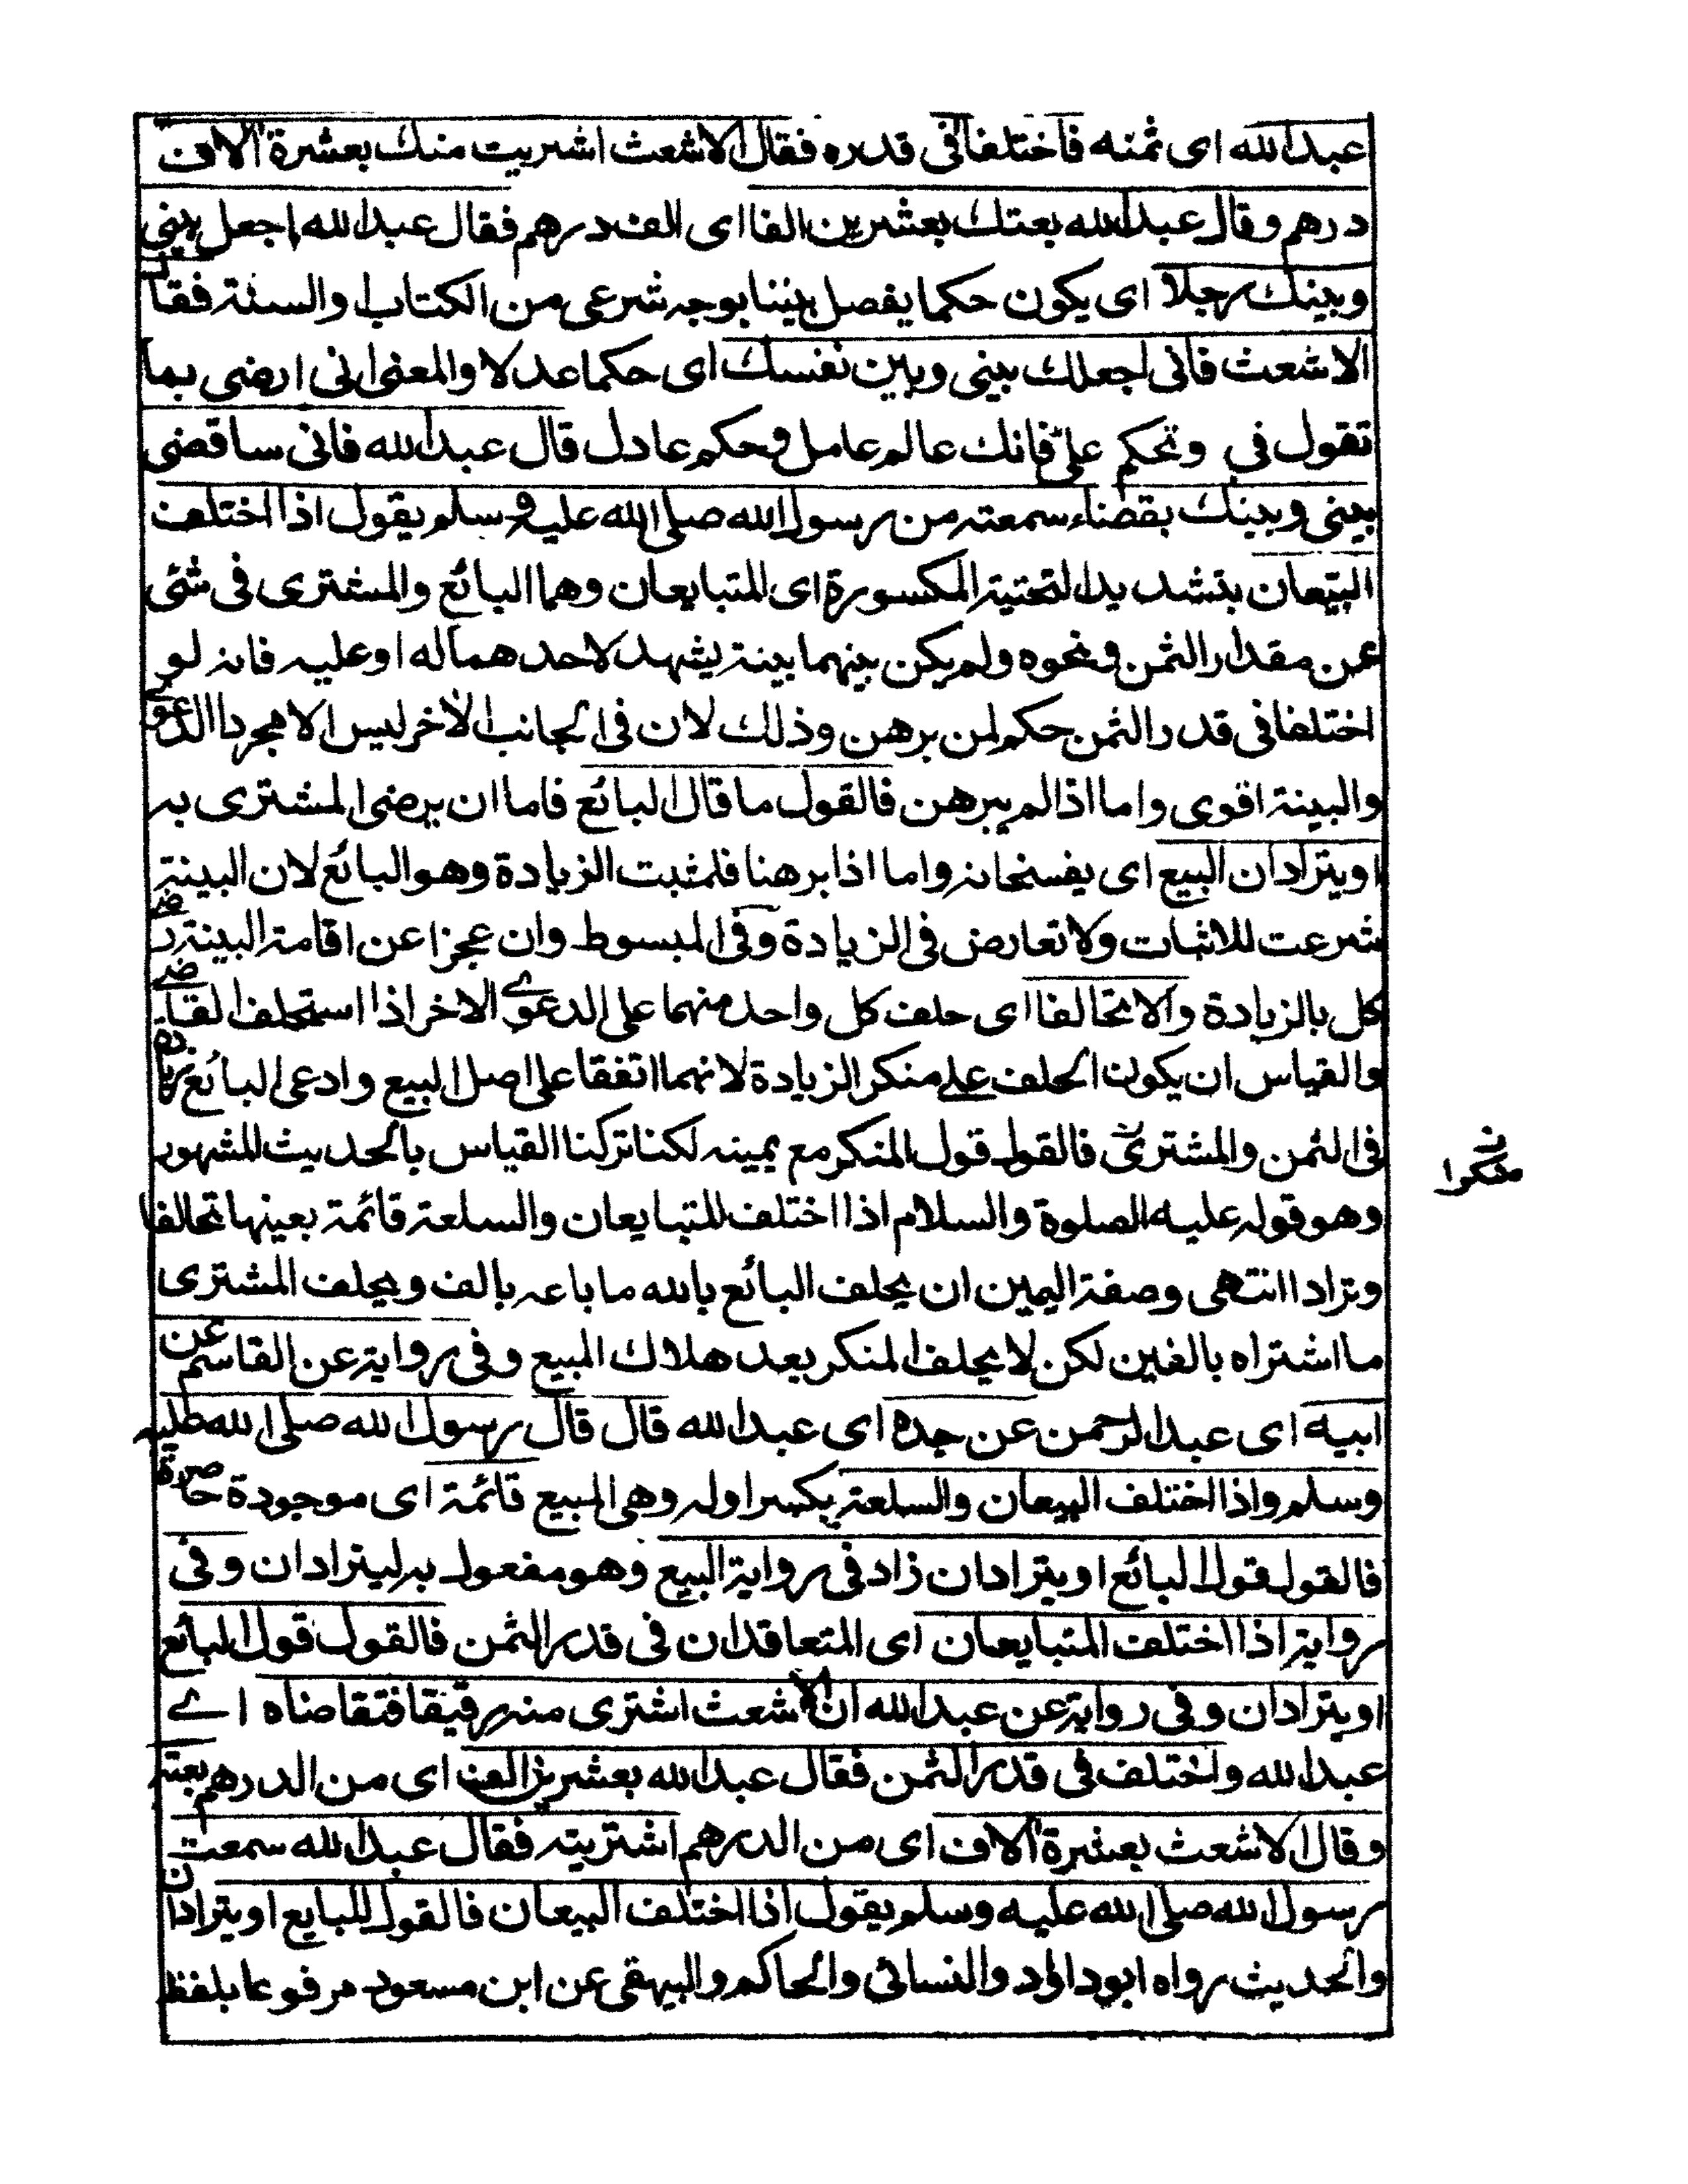 عبدالله اى ثمنه فاختلفا فى قدره فقال الاشعث اشتريت منك بعشرة آلاف
درهم وقال عبدالله بعتك بعشرين الفا اى الف درهم فقال عبدالله اجعل بينى
وبينك رجلا اى يكون حكما يفصل بيننا بوجه شرعى من الكتاب والسنة فقال
الاشعث فانى اجعلك بينى وبين نفسك اى حكما عدلا والمعنى انى ارضى بما
تقول فى وتحكم علىّ فانك عالم عامل وحكم عادل قال عبدالله فانى ساقضى
بينى وبينك بقضاء سمعته من رسول الله صلى الله عليه وسلم يقول اذا اختلف
البيّعان بتشديد التحتية المكسورة اى المتبايعان وهما البائع والمشترى فى شئى
عن مقدار الثمن ونحوه ولم يكن بينهما بينة يشهد لاحدهما له او عليه فانه لو
اختلفا فى قدر الثمن حكم لمن برهن وذلك لان فى الجانب الاخر ليس الا مجرد الدعوے
والبينة اقوى واما اذا لم يبرهن فالقول ما قال البائع فاما ان يرضى المشترى به
او يترادان البيع اى يفسخانه واما اذا برهنا فلمثبت الزيادة وهو البائع لان البينة
شرعت للاثبات ولا تعارض فى الزيادة وفى المبسوط وان عجزا عن اقامة البينة رضے
كل بالزيادة والا تحالفا اى حلف كل واحد منهما على الدعوے الاخر اذا استحلف القاضے
والقياس ان يكون الحلف علے منكر الزيادة لانهما اتفقا على اصل البيع وادعى البائع زيادة
فى الثمن والمشترى فالقول قول المنكر مع يمينه لكنا تركنا القياس بالحديث المشهور
منكرا
وهو قوله عليه الصلوة والسلام اذا اختلف المتبايعان والسلعة قائمة بعينها تحالفا
وترادا انتهى وصفة اليمين ان يحلف البائع بالله ما باعه بالف ويحلف المشترى
ما اشتراه بالفين لكن لا يحلف المنكر بعد هلاك المبيع وفى رواية عن القاسم عن
ابيه اى عبدالرحمن عن جده اى عبدالله قال قال رسول الله صلى الله عليه
وسلم واذا اختلف البيعان والسلعة بكسر اوله وهى المبيع قائمة اى موجودة حاضرة
فالقول قول البائع او يترادان زاد فى رواية البيع وهو مفعول به ليترادان وفى
رواية اذا اختلف المتبايعان اى المتعاقدان فى قدر الثمن فالقول قول البائع
او يترادان وفى رواية عن عبدالله ان الاشعث اشترى منه رقيقا فتقاضاه اے
عبدالله واختلف فى قدر الثمن فقال عبدالله بعشرين الف اى من الدرهم بعته
وقال الاشعث بعشرة آلاف اى من الدرهم اشتريته فقال عبدالله سمعت
رسول الله صلى الله عليه وسلم يقول اذا اختلف البيعان فالقول للبايع او يترادان
والحديث رواه ابو داؤد والنسائى والحاكم والبيهقى عن ابن مسعود مرفوعا بلفظ